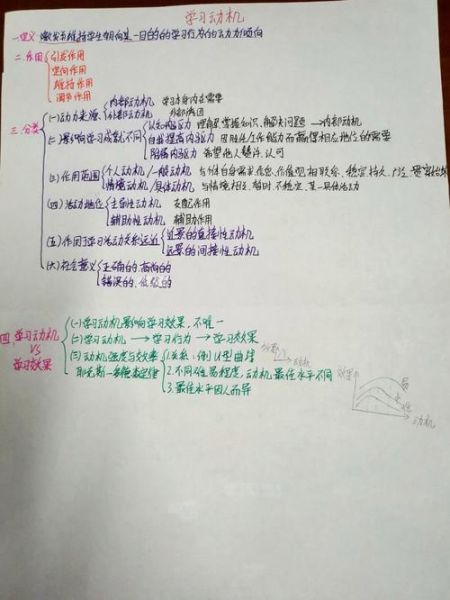 学习动机
一.定义 激发并维持学生朝向某一目的的学习行为的动力倾向
二.作用 引发作用
定向作用
维持作用
调节作用
三.分类
(一)动力来源 内部动机 学习本身内在需要
外部动机 外部诱因
(二)影响学习成就不同 认知内驱力 理解、掌握知识、解决问题 → 内部动机
自我提高内驱力 因胜任工作能力而赢得相应地位的需要
附属内驱力 希望他人赞许、认可
(三)作用范围 个人动机/一般动机 与个体自身需求、信念、价值观相联系、稳定持久
情境动机/具体动机 与情境相互、暂时、不稳定、某一具体活动
(四)活动地位 主导性动机 支配作用
辅助性动机 辅助作用
(五)作用与学习活动关系远近 近景的直接性动机
远景的间接性动机
(六)社会意义 正确的、高尚的
错误的、低级的
四 学习动机
VS
学习效果
(一)学习动机影响学习效果,不唯一
(二)学习动机 → 学习行为 → 学习效果
(三)动机强度与效率
耶克斯—多德森定律
1.关系:倒U型曲线
2.不同难易程度,动机最佳水平不同
3.最佳水平因人而异
效果
易
中
难
动机